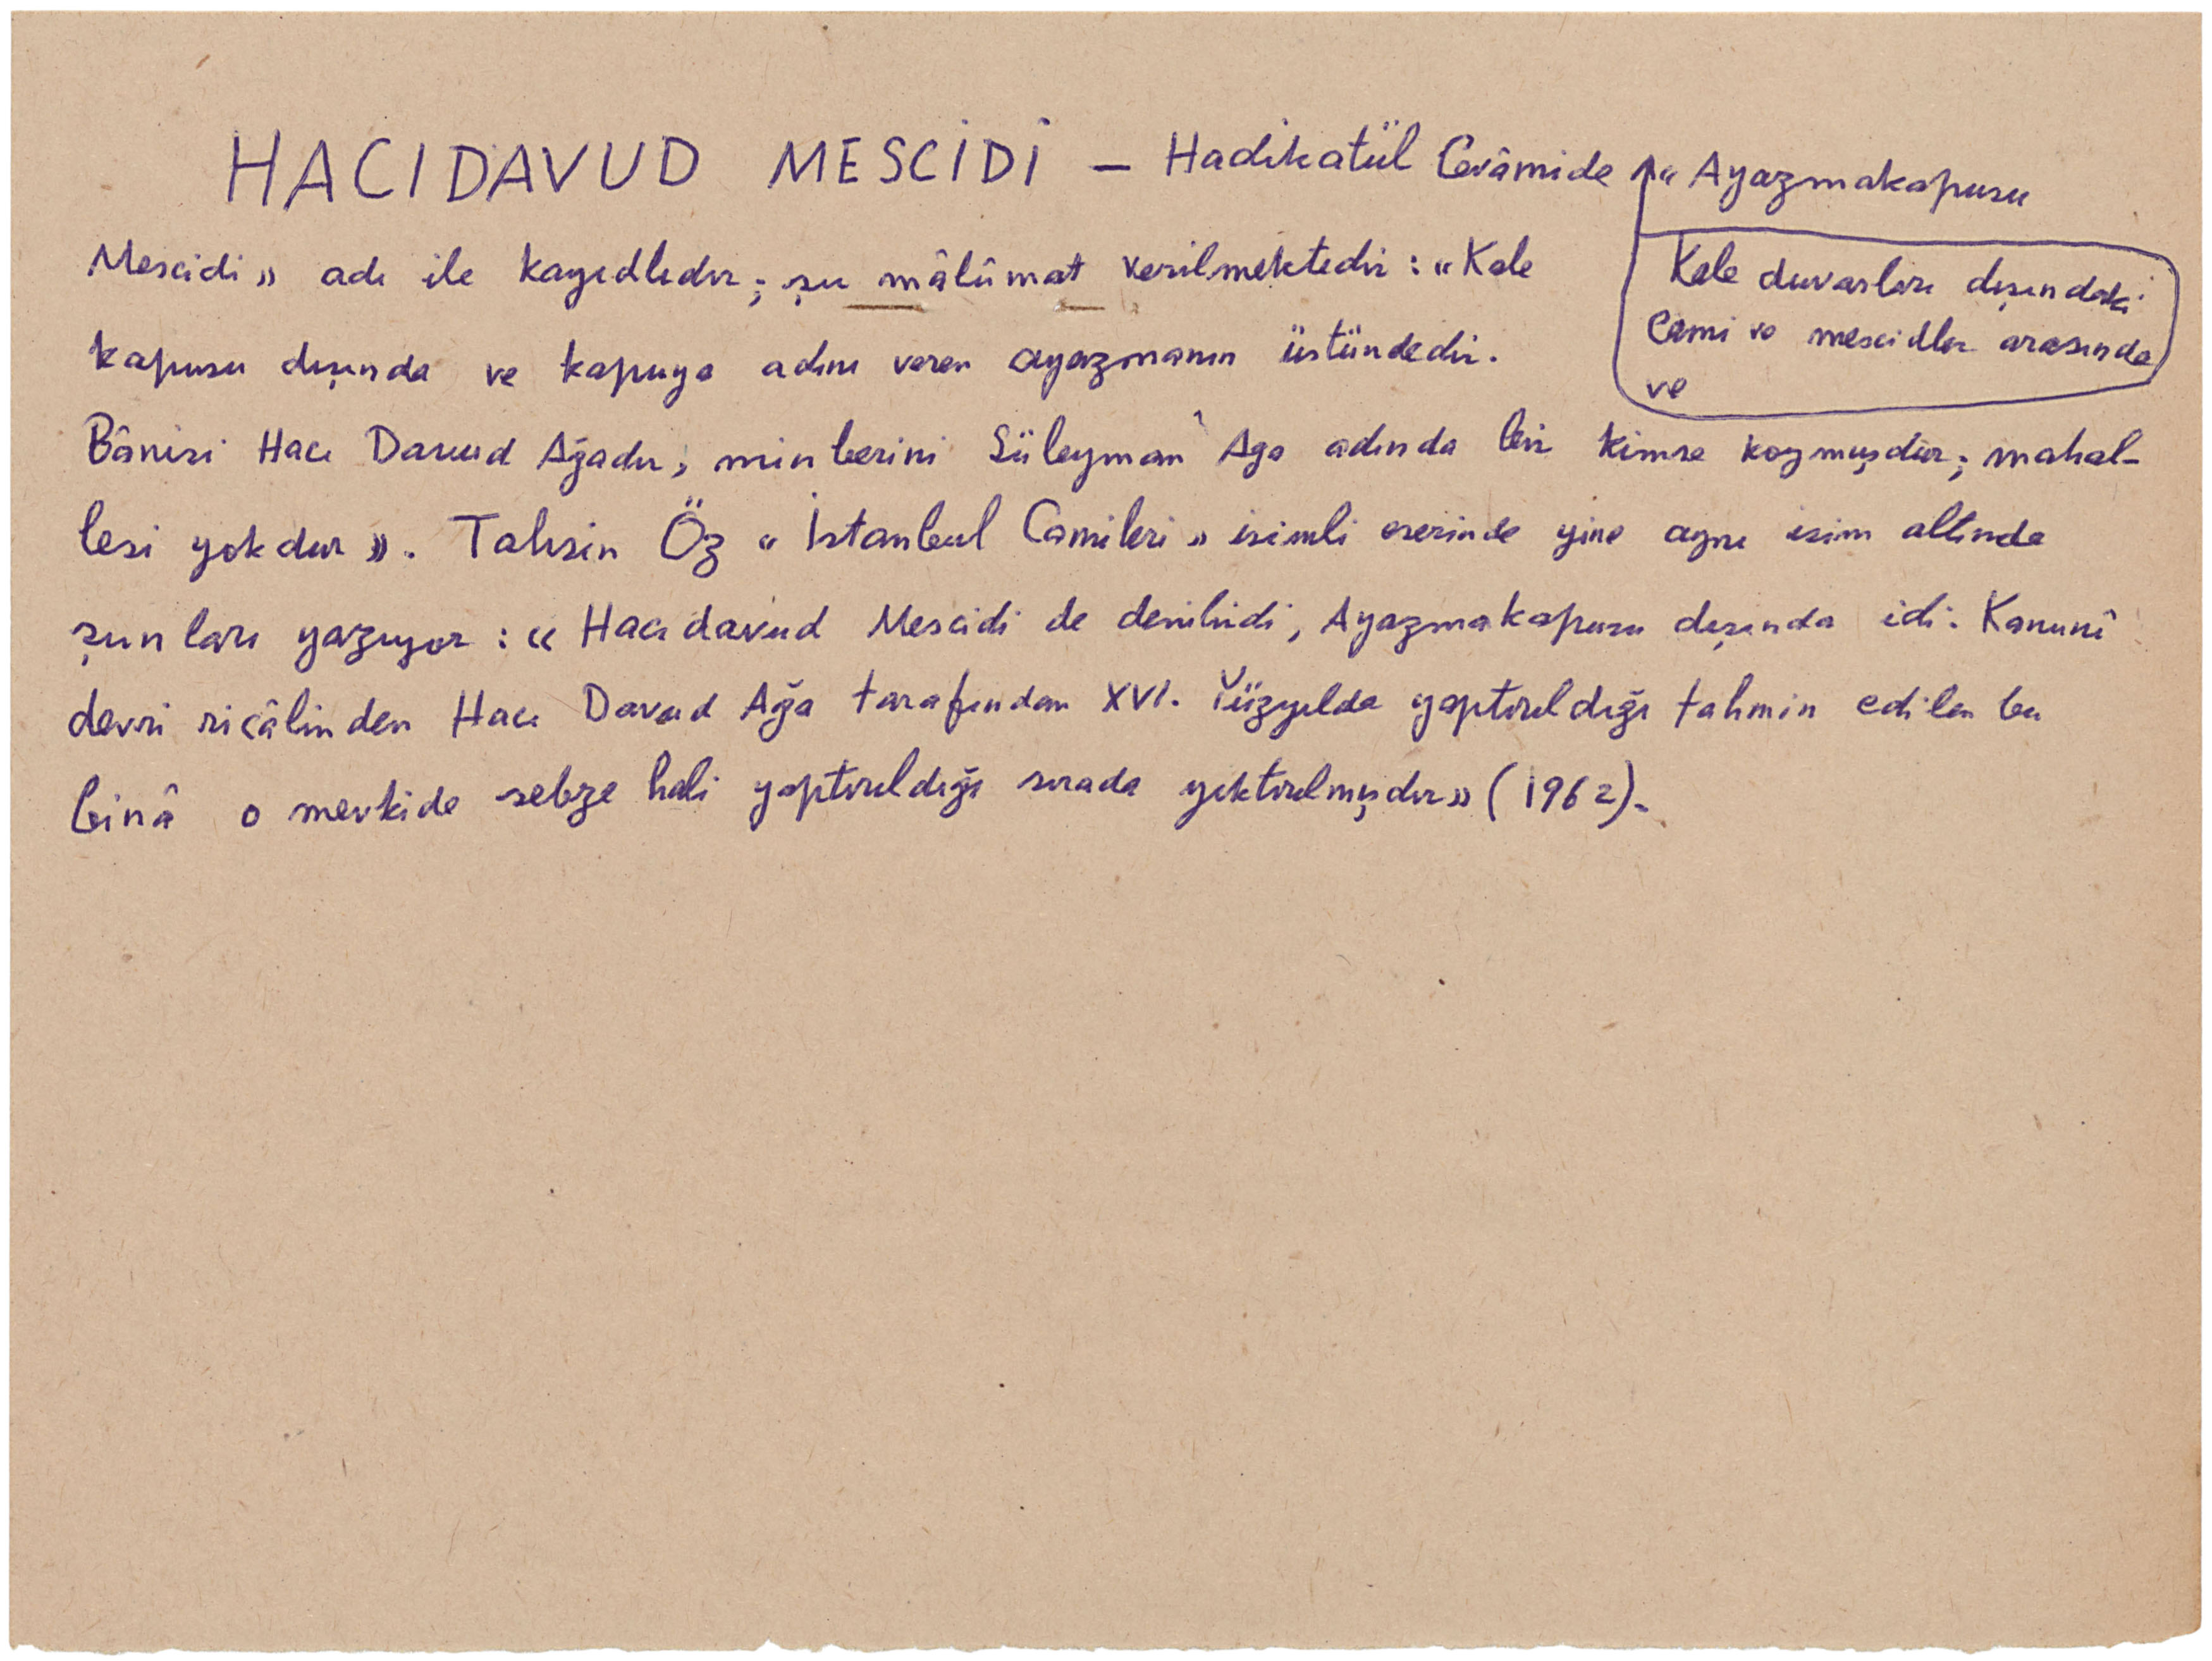 HACIDAVUD MESCİDİ — Hadikatül Cevâmide « Ayazmakapusu
Kale duvarları dışındaki
Cami ve mescidler arasında
ve
Mescidi » adı ile kayıdlıdır; şu mâlûmat verilmektedir : « Kale
kapusu dışında ve kapuya adını veren ayazmanın üstündedir.
Bânisi Hacı Davud Ağadır, minberini Süleyman Aga adında bir kimse koymuşdur; mahal-
lesi yokdur ». Tahsin Öz « İstanbul Camileri » isimli eserinde yine aynı isim altında
şunları yazıyor : « Hacıdavud Mescidi de denilirdi, Ayazmakapusu dışında idi. Kanunî
devri ricâlinden Hacı Davud Ağa tarafından XVI. Yüzyılda yaptırıldığı tahmin edilen bu
binâ o mevkide sebze hali yaptırıldığı sırada yıktırılmışdır » (1962).